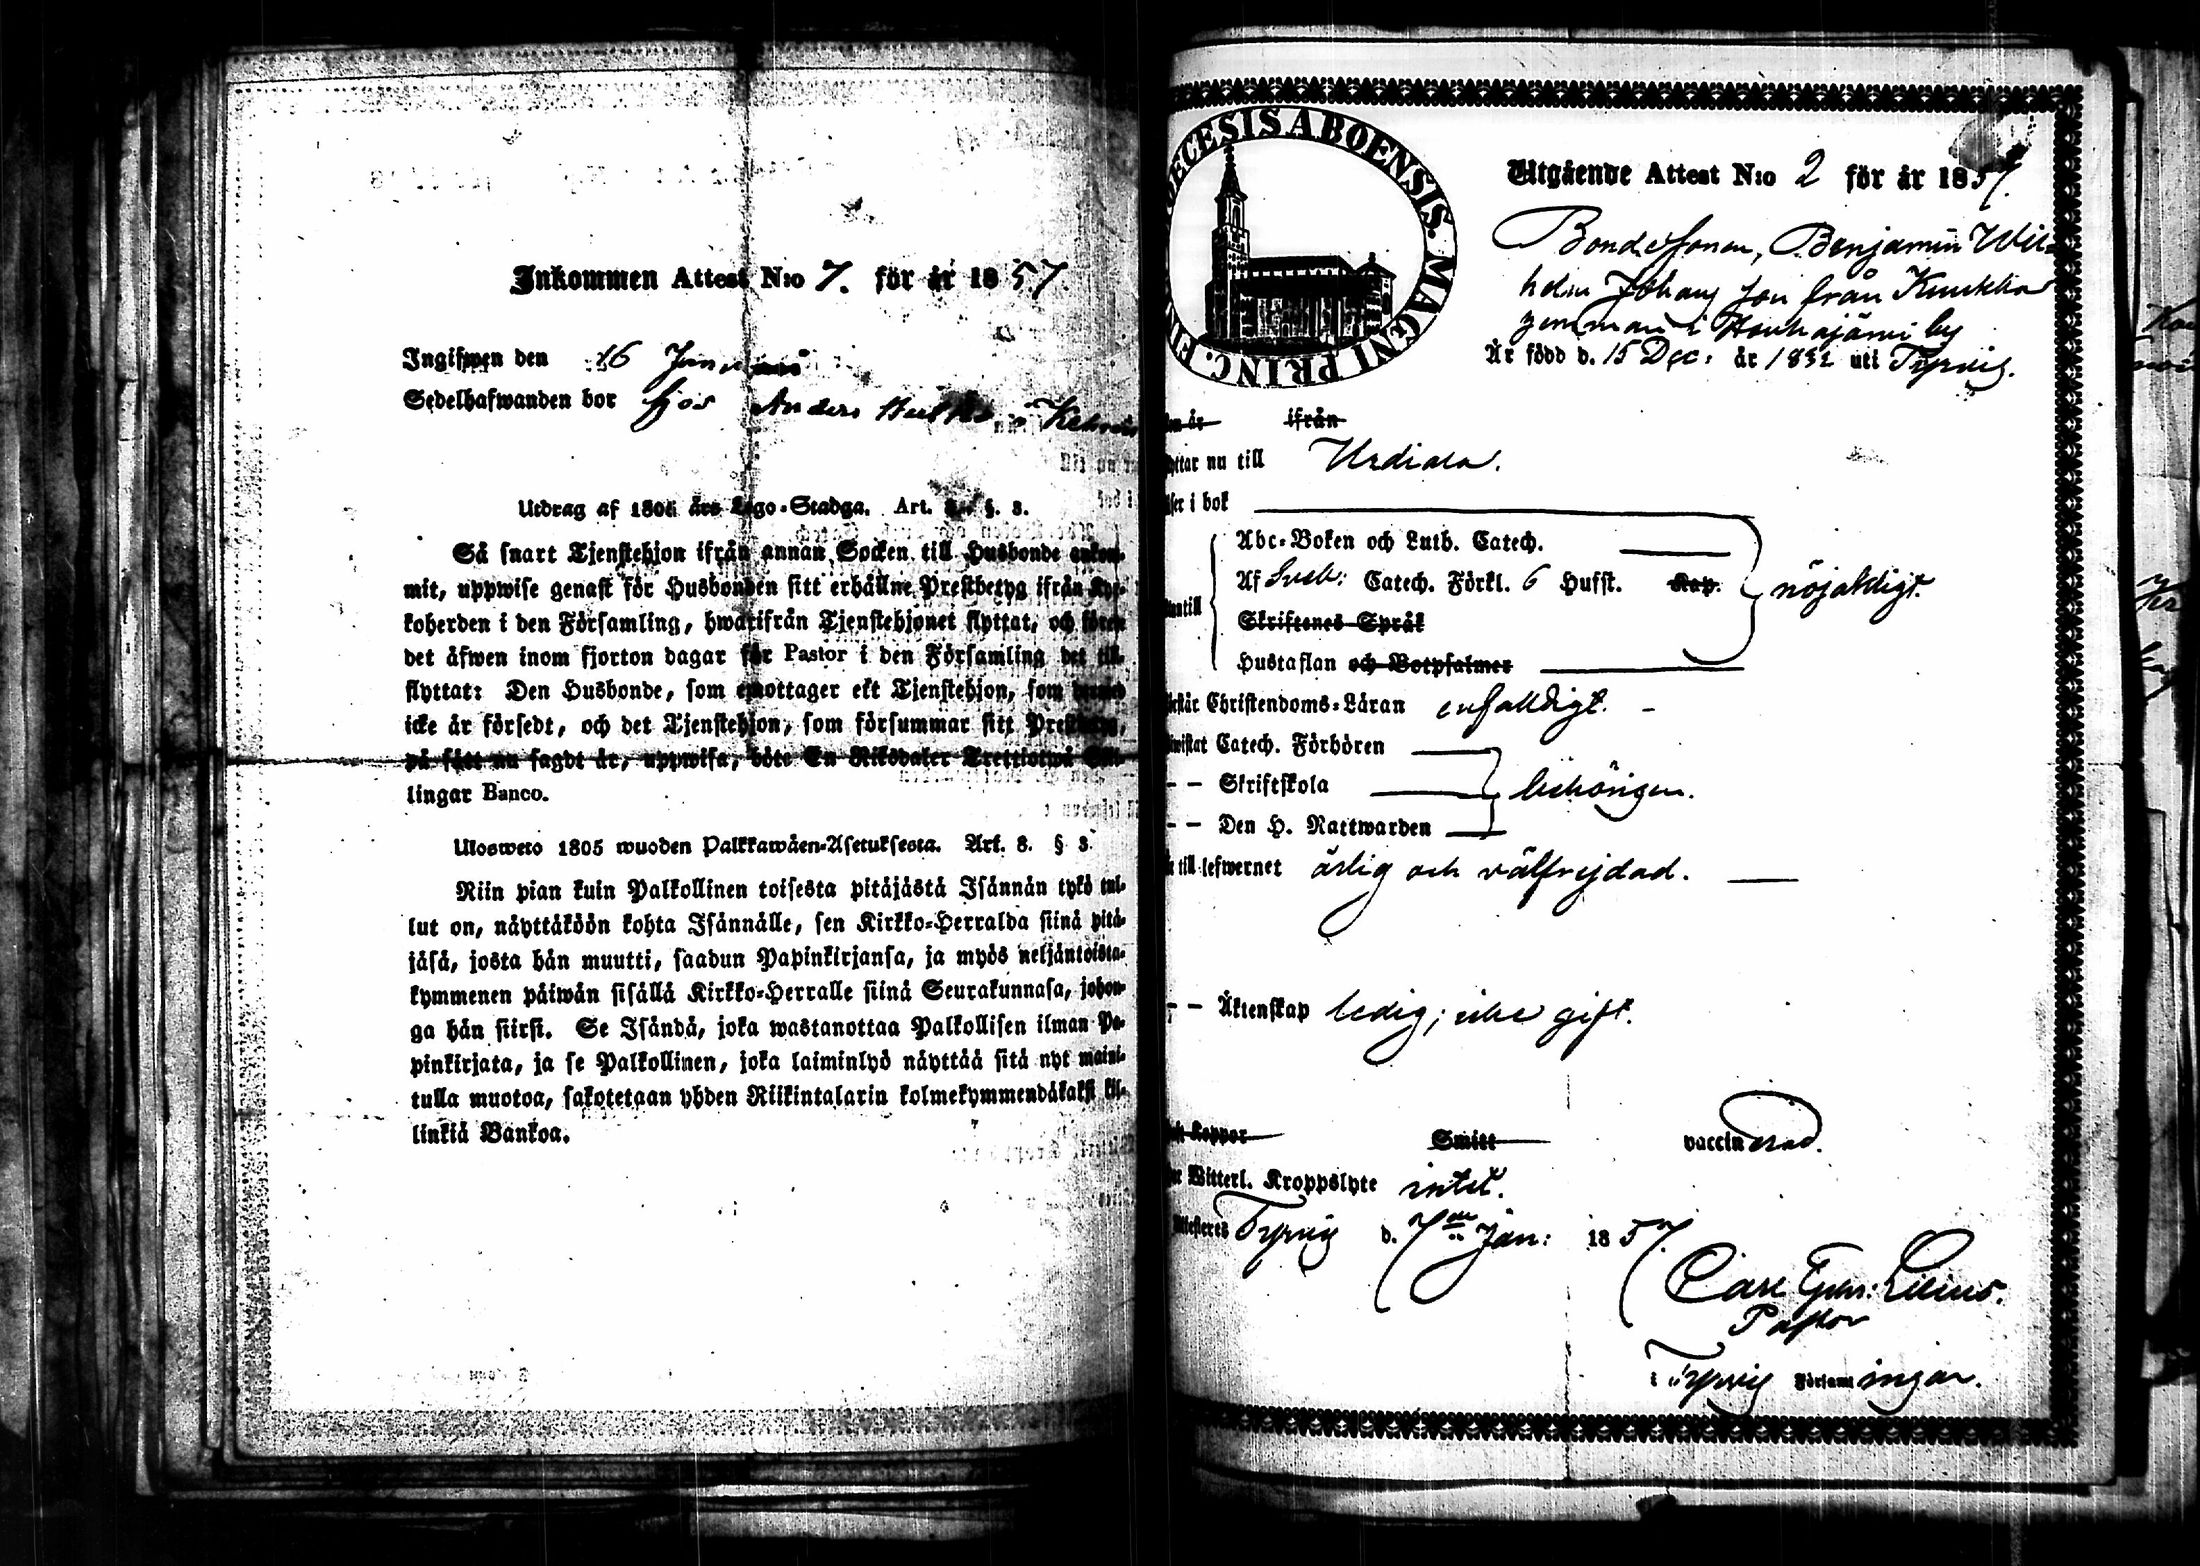 Inkommen Attest N:o 7. för år 1857.
Ingifwen den 16 Januari
Sedelhafwanden bor hjos Anders
Utdrag af 1805 års Lego-Stadga. Art. §. 3.
Så snart Tjenstehjon ifrån annan Socken till Husbonde ankom-
mit, uppwise genast för Husbonden sitt erhållne Prestbetyg ifrån Kyr-
koherden i den Församling, hwarifrån Tjenstehjonet flyttat, och förete
det äfwen inom fjorton dagar för Pastor i den Församling det till-
flyttat: Den Husbonde, som emottager ett Tjenstehjon, som dermed
icke är försedt, och det Tjenstehjon, som försummar sitt Prestbetyg,
på sätt nu sagdt är, uppwisa, böte En Riksdaler Trettiotwå Skil-
lingar Banco.
Ulosweto 1805 wuoden Palkkawäen-Asetuksesta. Art. 8. § 3.
Niin pian kuin Palkollinen toisesta pitäjästä Isännän tykö tul-
lut on, näyttäköön kohta Isännälle, sen Kirkko-Herralda siinä pitä-
jäsä, josta hän muutti, saadun Papinkirjansa, ja myös neljäntoista-
kymmenen päiwän sisällä Kirkko-Herralle siinä Seurakunnasa, johon-
ga hän siirsi. Se Isändä, joka wastanottaa Palkollisen ilman Pa-
pinkirjata, ja se Palkollinen, joka laiminlyö näyttää sitä nyt maini-
tulla muotoa, sakotetaan yhden Riikintalarin kolmekymmendäkaksi kil-
linkiä Bankoa.
DECESIS ABOENSIS. MAGNI PRINC. FIN
Utgående Attest N:o 2 för år 1857.
Bondesonen, Benjamin Wil-
helm Johans son från
i by
Är född d. 15 Dec: år 1832 uti Tyrvis.
är ifrån
yttar nu till Urdiala.
ser i bok
Abc-Boken och Luth. Catech.
Af Sveb: Catech. Förkl. 6 Hufst. Kap. nöjaktigt.
antill
Skriftenes Språk
Hustaflan och Botpsalmer
estår Christendoms-Läran enfaldigt.
wistat Catech. Förhören
– – Skriftskola behörigen.
– – Den H. Nattwarden
till lefwernet ärlig och välfrejdad.
– – Äktenskap ledig; icke gift.
Koppor Smitt vaccinerad.
Witterl. Kroppslyte intet.
Attesteres Tyrvis d. 7de Jan: 1857.
Carl Gust: Lilius.
Pastor
i Tyrvis Församlingar.